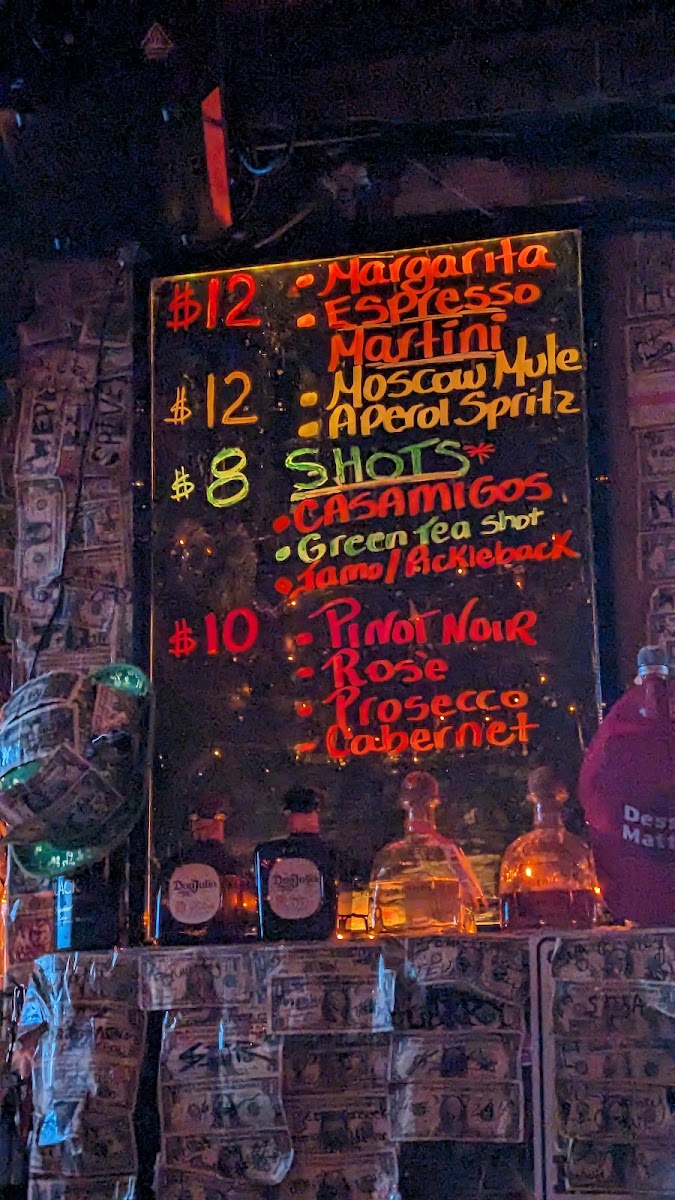 $12 • Margarita
• Espresso
Martini
$12 • Moscow Mule
• Aperol Spritz
$8 SHOTS*
• CASAMIGOS
• Green Tea Shot
• Jamo/Pickleback
$10 - Pinot Noir
- Rosè
- Prosecco
- Cabernet
Don Julio
Don Julio